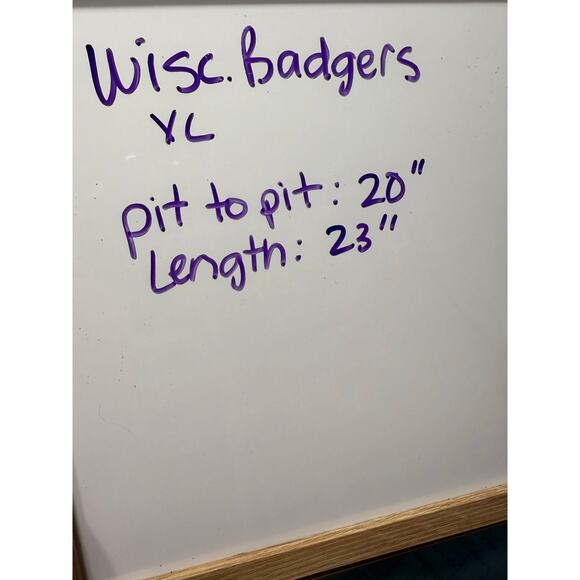 Wisc. Badgers
YL
pit to pit: 20"
Length: 23"